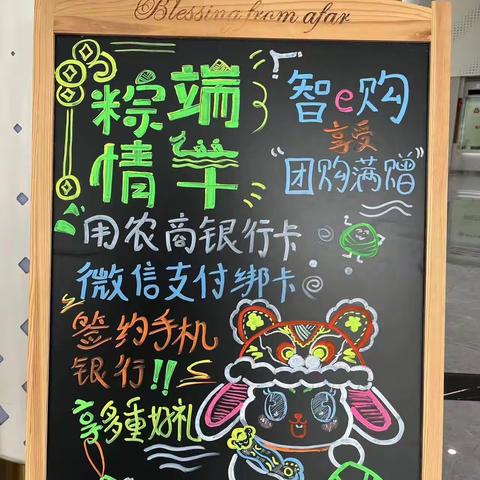 Blessing from afar
端午
粽情
智e购
享受
"团购满赠"
用农商银行卡
微信支付绑卡
签约手机
银行!!
享多重好礼